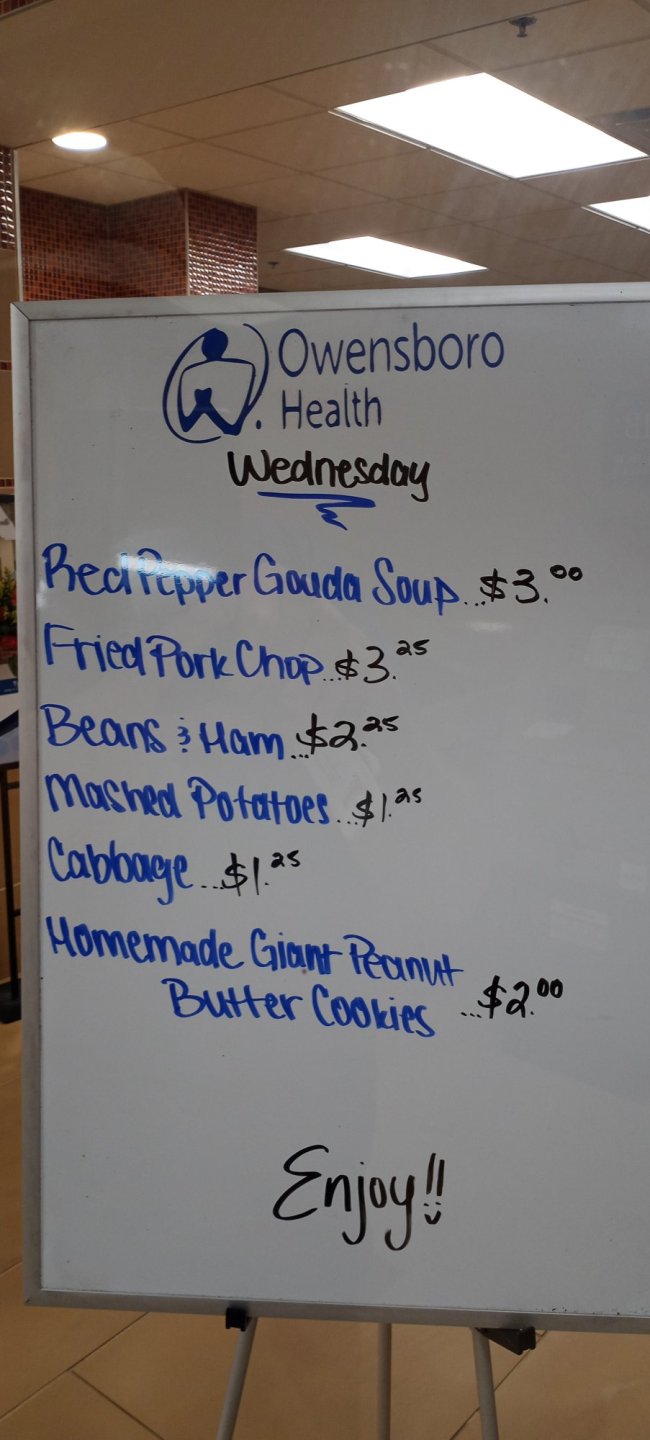 Owensboro
Health
Wednesday
Red Pepper Gouda Soup...$3.00
Fried Pork Chop...$3.25
Beans & Ham...$2.25
Mashed Potatoes...$1.25
Cabbage...$1.25
Homemade Giant Peanut
Butter Cookies...$2.00
Enjoy!!